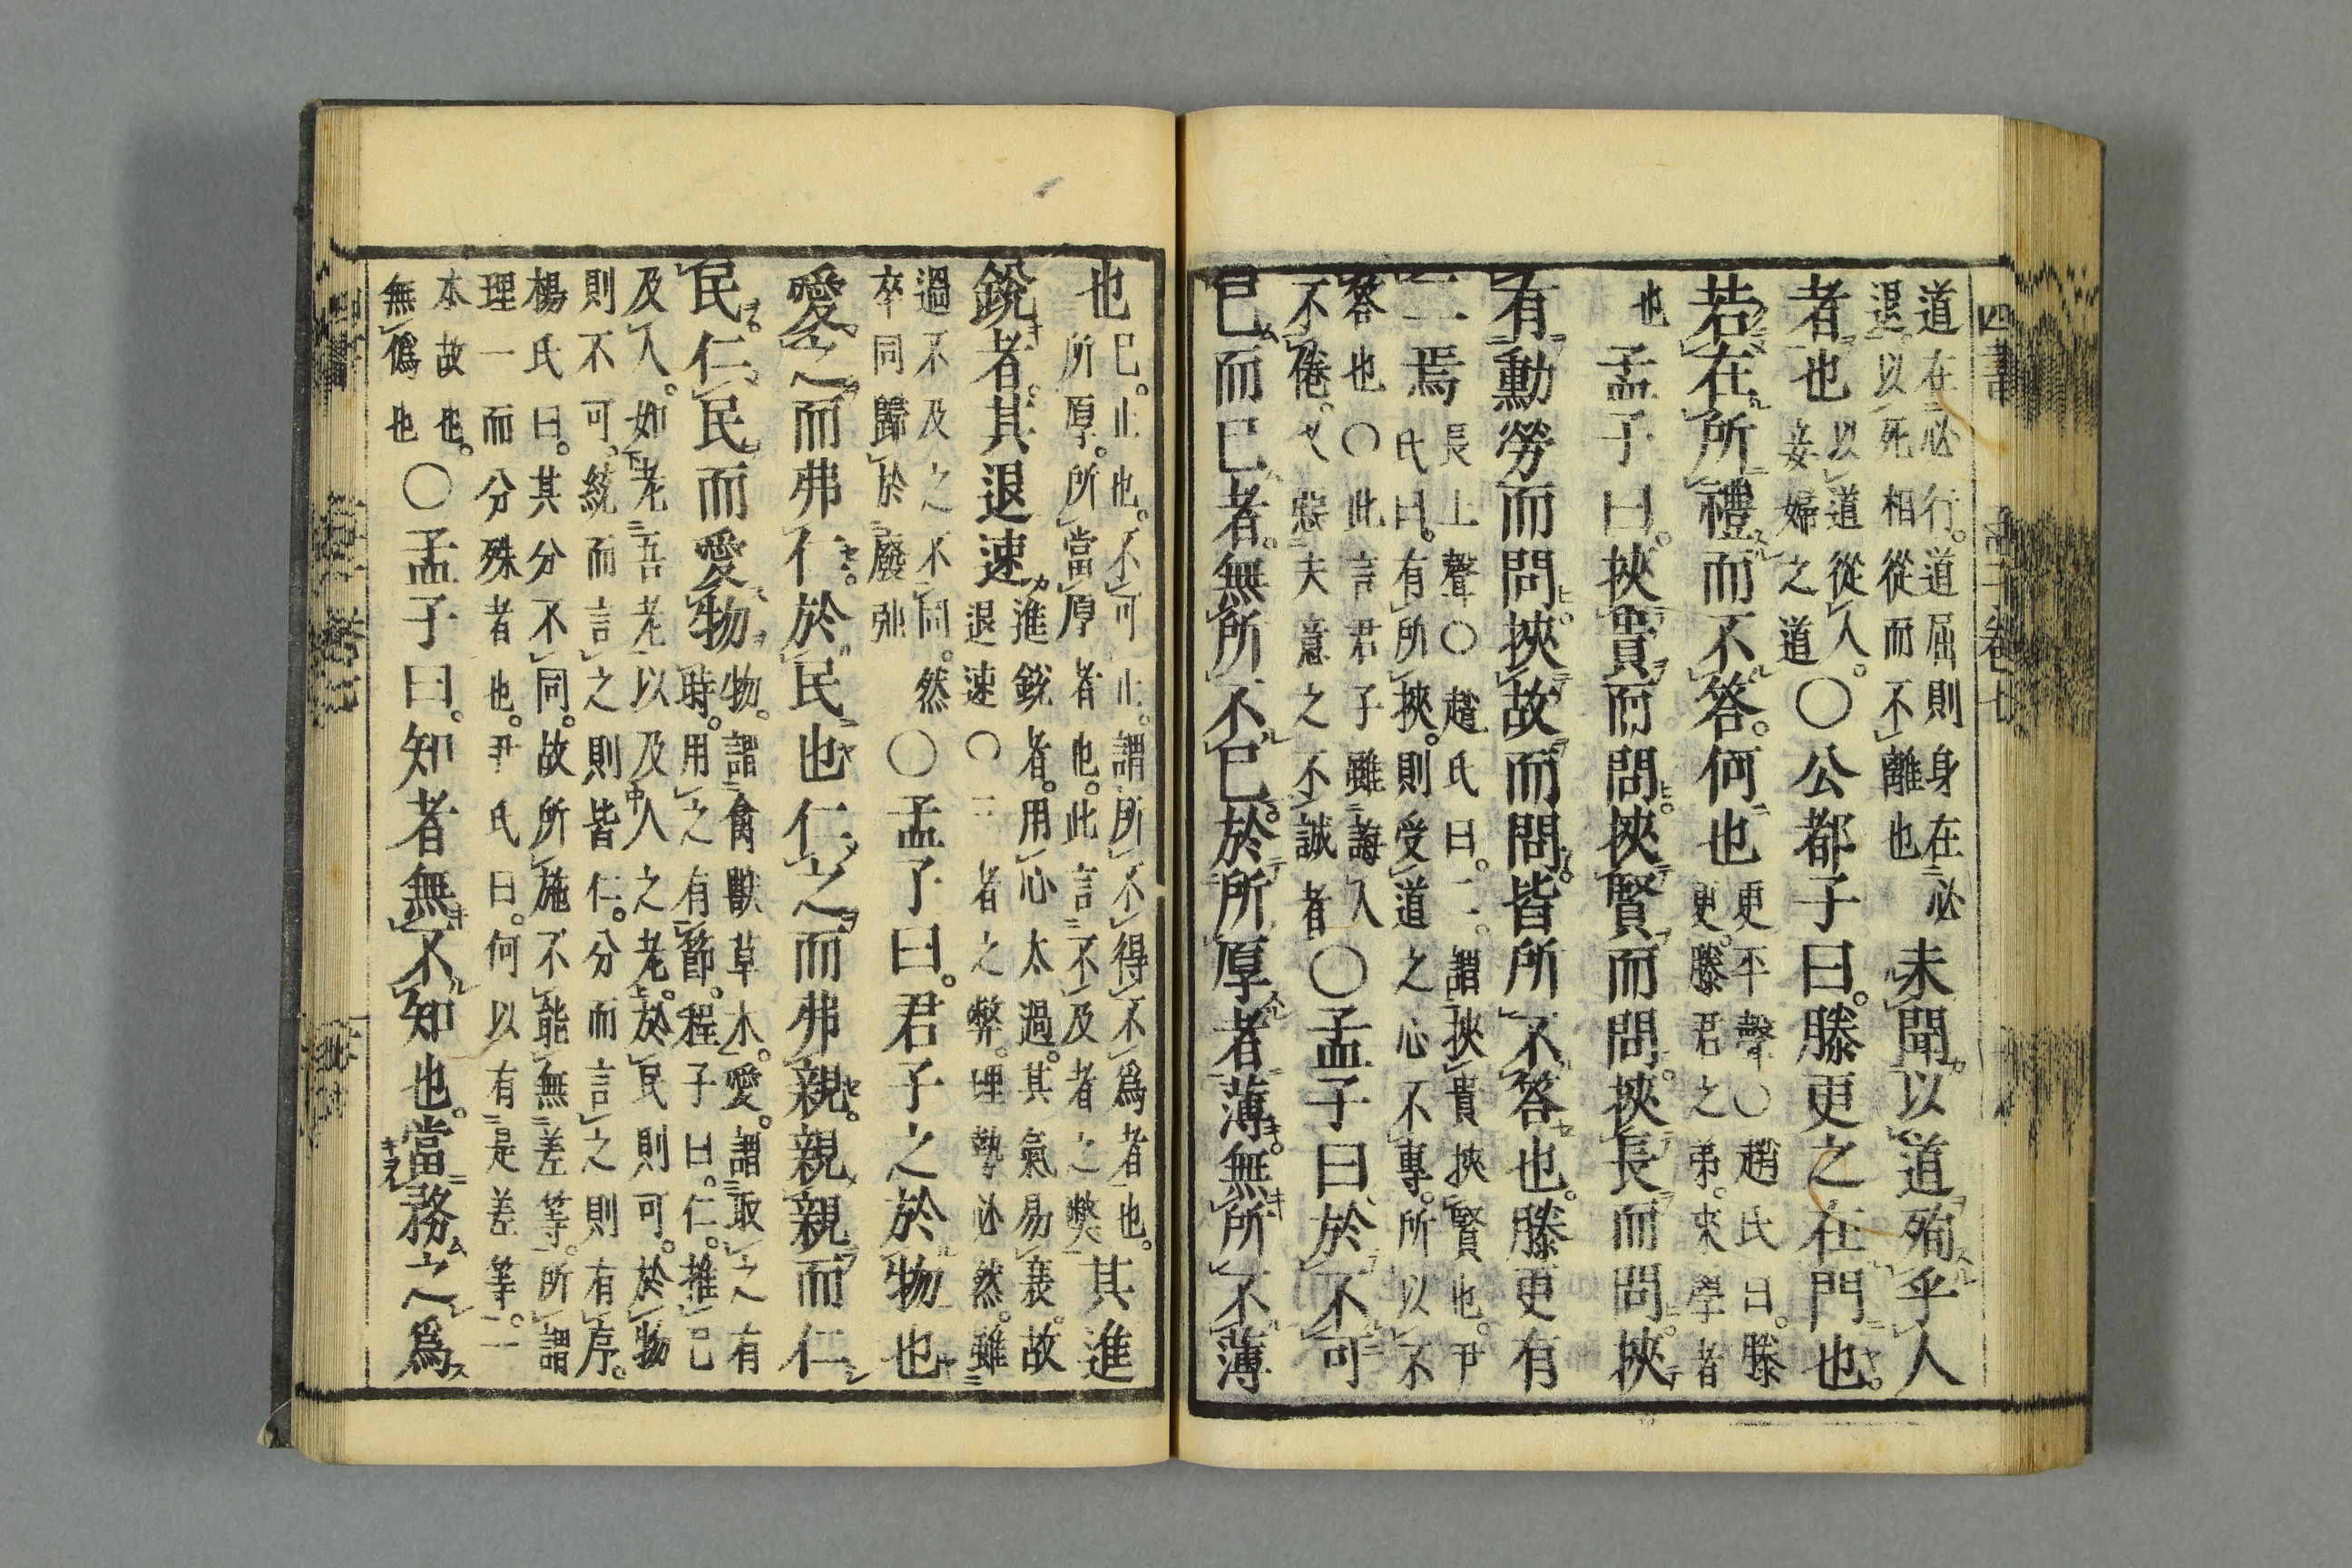 四書 孟子卷七
道在必行道屈則身在必
退以死相從而不離也
未聞以道殉乎人
者也
以道從人
妾婦之道
○公都子曰滕更之在門也
若在所禮而不答何也
更平聲○趙氏曰滕
更滕君之弟來學者
也
孟子曰挾貴而問挾賢而問挾長而問挾
有勳勞而問挾故而問皆所不答也滕更有
二焉
長上聲○趙氏曰二謂挾貴挾賢也尹
氏曰有所挾則受道之心不專所以不
答也○此言君子雖誨人
不倦又惡夫意之不誠者
○孟子曰於不可
已而已者無所不已於所厚者薄無所不薄
也
已止也不可止謂所不得不爲者也
所厚所當厚者也此言不及者之獘
其進
銳者其退速
進銳者用心太過其氣易衰故
退速○二者之弊理勢必然雖
過不及之不同然
卒同歸於廢弛
○孟子曰君子之於物也
愛之而弗仁於民也仁之而弗親親親而仁
民仁民而愛物
物謂禽獸草木愛謂取之有
時用之有節程子曰仁推己
及人如老吾老以及人之老於民則可於物
則不可統而言之則皆仁分而言之則有序
楊氏曰其分不同故所施不能無差等所謂
理一而分殊者也尹氏曰何以有是差等一
本故也
無僞也
○孟子曰知者無不知也當務之爲